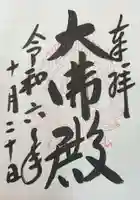 奉拝
大佛殿
令和六年
十月二十日